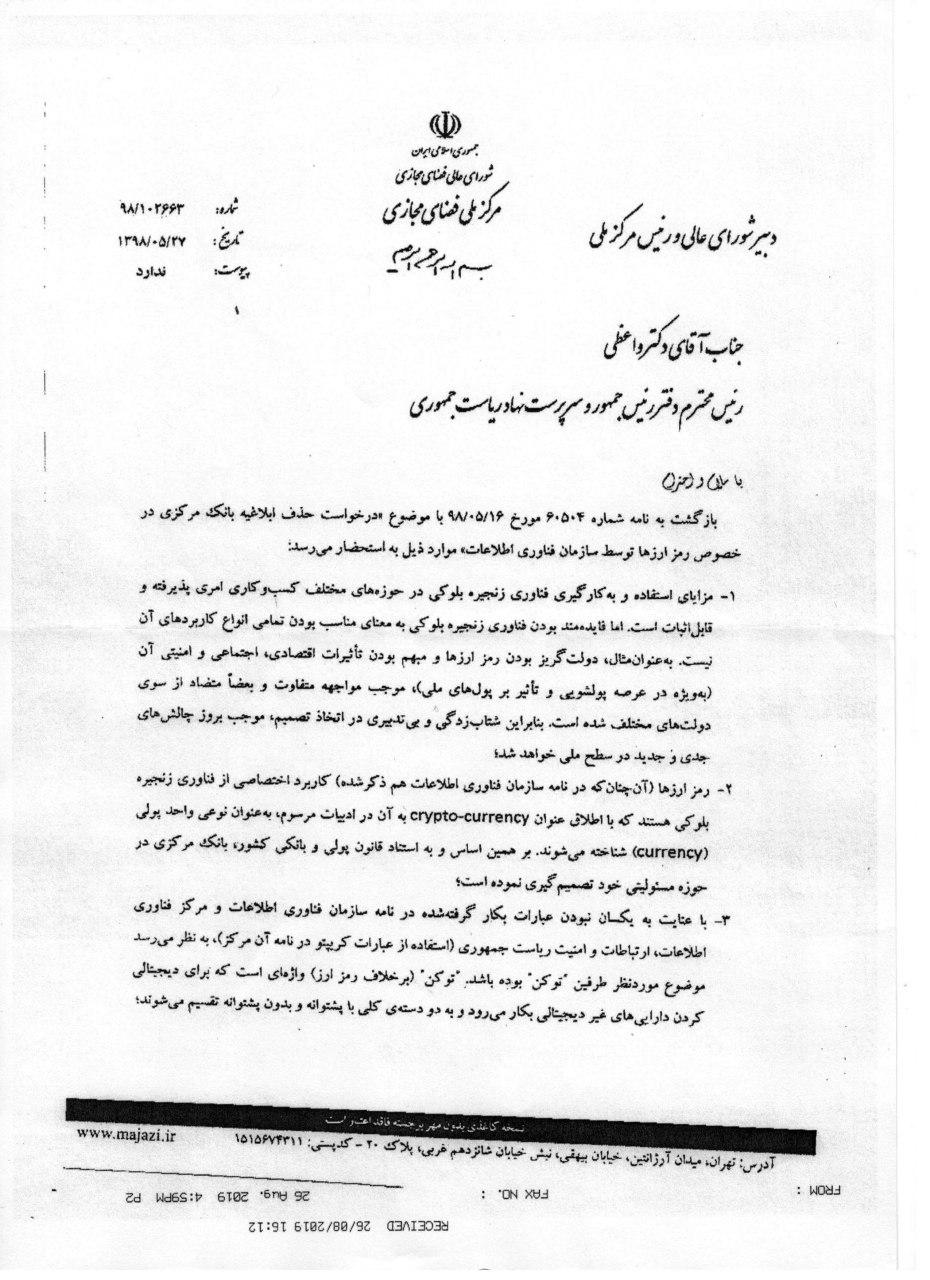 جمهوری اسلامی ایران
شورای عالی فضای مجازی
مرکز ملی فضای مجازی
بسم الله الرحمن الرحیم
دبیر شورای عالی و رئیس مرکز ملی
شماره: ۹۸/۱۰۲۶۶۳
تاریخ: ۱۳۹۸/۰۵/۲۷
پیوست: ندارد
۱
جناب آقای دکتر واعظی
رئیس محترم دفتر رئیس جمهور و سرپرست نهاد ریاست جمهوری
با سلام و احترام
بازگشت به نامه شماره ۶۰۵۰۴ مورخ ۹۸/۰۵/۱۶ با موضوع «درخواست حذف ابلاغیه بانک مرکزی در
خصوص رمز ارزها توسط سازمان فناوری اطلاعات» موارد ذیل به استحضار می‌رسد:
۱- مزایای استفاده و به‌کارگیری فناوری زنجیره بلوکی در حوزه‌های مختلف کسب‌وکاری امری پذیرفته و
قابل‌اثبات است. اما فایده‌مند بودن فناوری زنجیره بلوکی به معنای مناسب بودن تمامی انواع کاربردهای آن
نیست. به‌عنوان‌مثال، دولت‌گریز بودن رمز ارزها و مبهم بودن تأثیرات اقتصادی، اجتماعی و امنیتی آن
(به‌ویژه در عرصه پولشویی و تأثیر بر پول‌های ملی)، موجب مواجهه متفاوت و بعضاً متضاد از سوی
دولت‌های مختلف شده است. بنابراین شتاب‌زدگی و بی‌تدبیری در اتخاذ تصمیم، موجب بروز چالش‌های
جدی و جدید در سطح ملی خواهد شد؛
۲- رمز ارزها (آن‌چنان‌که در نامه سازمان فناوری اطلاعات هم ذکرشده) کاربرد اختصاصی از فناوری زنجیره
بلوکی هستند که با اطلاق عنوان crypto-currency به آن در ادبیات مرسوم، به‌عنوان نوعی واحد پولی
(currency) شناخته می‌شوند. بر همین اساس و به استناد قانون پولی و بانکی کشور، بانک مرکزی در
حوزه مسئولیتی خود تصمیم‌گیری نموده است؛
۳- با عنایت به یکسان نبودن عبارات بکار گرفته‌شده در نامه سازمان فناوری اطلاعات و مرکز فناوری
اطلاعات، ارتباطات و امنیت ریاست جمهوری (استفاده از عبارات کریپتو در نامه آن مرکز)، به نظر می‌رسد
موضوع موردنظر طرفین "توکن" بوده باشد. "توکن" (برخلاف رمز ارز) واژه‌ای است که برای دیجیتالی
کردن دارایی‌های غیر دیجیتالی بکار می‌رود و به دو دسته‌ی کلی با پشتوانه و بدون پشتوانه تقسیم می‌شوند؛
نسخه کاغذی بدون مهر برجسته فاقد اعتبار است
آدرس: تهران، میدان آرژانتین، خیابان بیهقی، نبش خیابان شانزدهم غربی، پلاک ۲۰ - کدپستی: ۱۵۱۵۶۷۴۳۱۱
www.majazi.ir
FROM : FAX NO. : 26 Aug. 2019 4:59PM P2
RECEIVED 26/08/2019 16:12